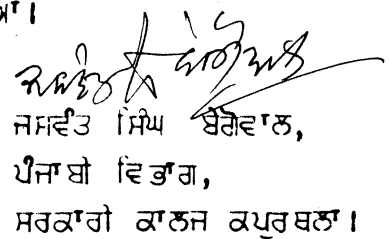 ਜਸਵੰਤ ਸਿੰਘ ਬੇਗੋਵਾਲ,
ਪੰਜਾਬੀ ਵਿਭਾਗ,
ਸਰਕਾਰੀ ਕਾਲਜ ਕਪੂਰਥਲਾ।